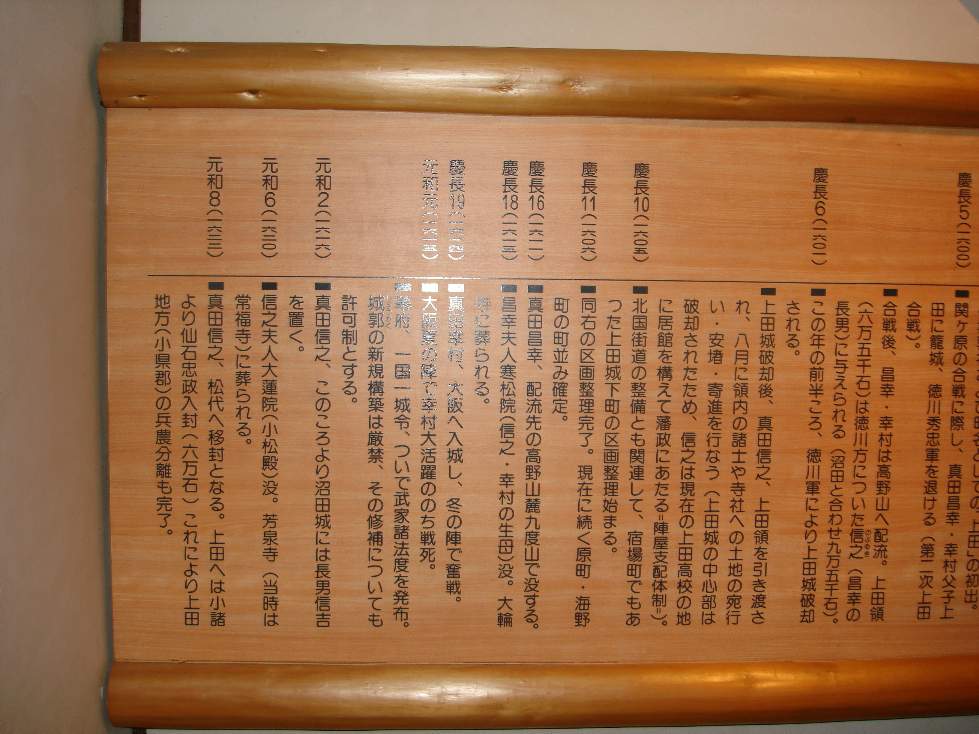 慶長5(一六〇〇)
■関ヶ原の合戦に際し、真田昌幸・幸村父子上
田に籠城、徳川秀忠軍を退ける(第二次上田
合戦)。
■合戦後、昌幸・幸村は高野山へ配流。上田領
(六万五千石)は徳川方についた信之(昌幸の
長男)に与えられる(沼田と合わせ九万五千石)。
慶長6(一六〇一)
■この年の前半ころ、徳川軍により上田城破却
される。
■上田城破却後、真田信之、上田領を引き渡さ
れ、八月に領内の諸士や寺社への土地の宛行
い・安堵・寄進を行なう(上田城の中心部は
破却されたため、信之は現在の上田高校の地
に居館を構えて藩政にあたる=陣屋支配体制=)。
慶長10(一六〇五)
■北国街道の整備とも関連して、宿場町でもあ
つた上田城下町の区画整理始まる。
慶長11(一六〇六)
■同右の区画整理完了。現在に続く原町・海野
町の町並み確定。
慶長16(一六一一)
■真田昌幸、配流先の高野山麓九度山で没する。
慶長18(一六一三)
■昌幸夫人寒松院(信之・幸村の生母)没。大輪
寺に葬られる。
慶長19(一六一四)
■真田幸村、大阪へ入城し、冬の陣で奮戦。
元和元(一六一五)
■大阪夏の陣で幸村大活躍ののち戦死。
■幕府、一国一城令、ついで武家諸法度を発布。
城郭の新規構築は厳禁、その修補についても
許可制とする。
元和2(一六一六)
■真田信之、このころより沼田城には長男信吉
を置く。
元和6(一六二〇)
■信之夫人大蓮院(小松殿)没。芳泉寺(当時は
常福寺)に葬られる。
元和8(一六二二)
■真田信之、松代へ移封となる。上田へは小諸
より仙石忠政入封(六万石)これにより上田
地方(小県郡)の兵農分離も完了。